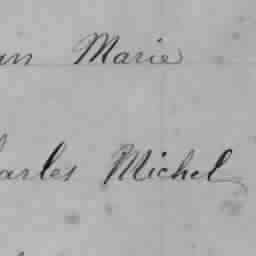 un Marie
harles Michel